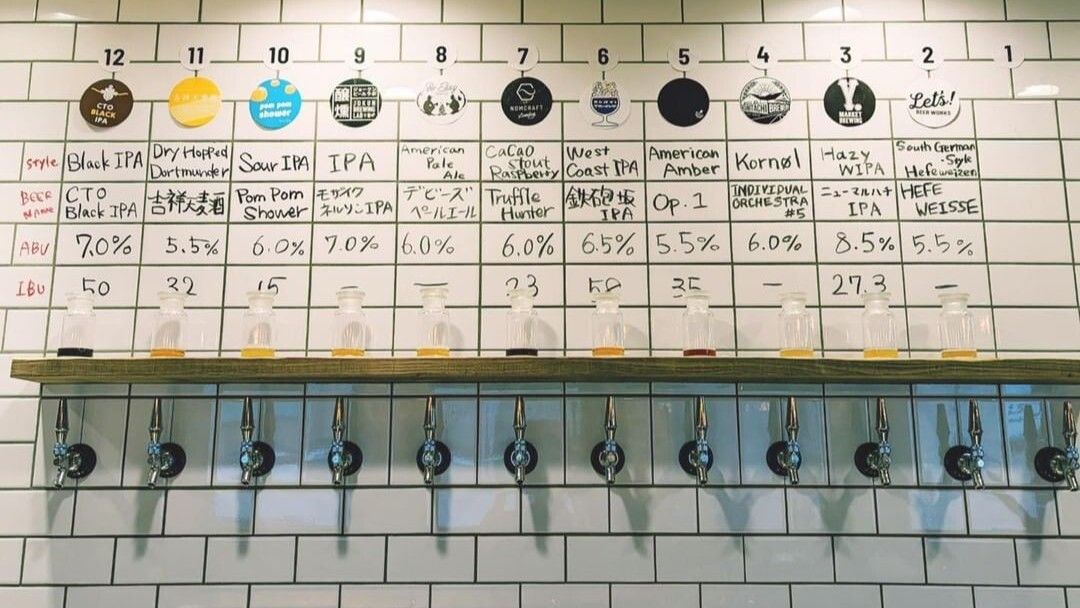 12 11 10 9 8 7 6 5 4 3 2 1
CTO
BLACK
IPA
pom pom
shower
NOMCRAFT
Y.
MARKET
BREWING
Let's!
BEER WORKS
Style
Black IPA
Dry Hopped
Dortmunder
Sour IPA
IPA
American
Pale
Ale
CaCao
Stout
Raspberry
West
Coast IPA
American
Amber
Kornøl
Hazy
WIPA
South German
-Style
Hefeweizen
BEER
NAME
CTO
Black IPA
吉祥大麦酒
Pom Pom
Shower
モザイク
ネルソンIPA
デビーズ
ペールエール
Truffle
Hunter
鉄砲坂
IPA
Op. 1
INDIVIDUAL
ORCHESTRA
#5
ニューミルハチ
IPA
HEFE
WEISSE
ABU 7.0% 5.5% 6.0% 7.0% 6.0% 6.0% 6.5% 5.5% 6.0% 8.5% 5.5%
IBU 50 32 15 — — 23 50 35 — 27.3 —